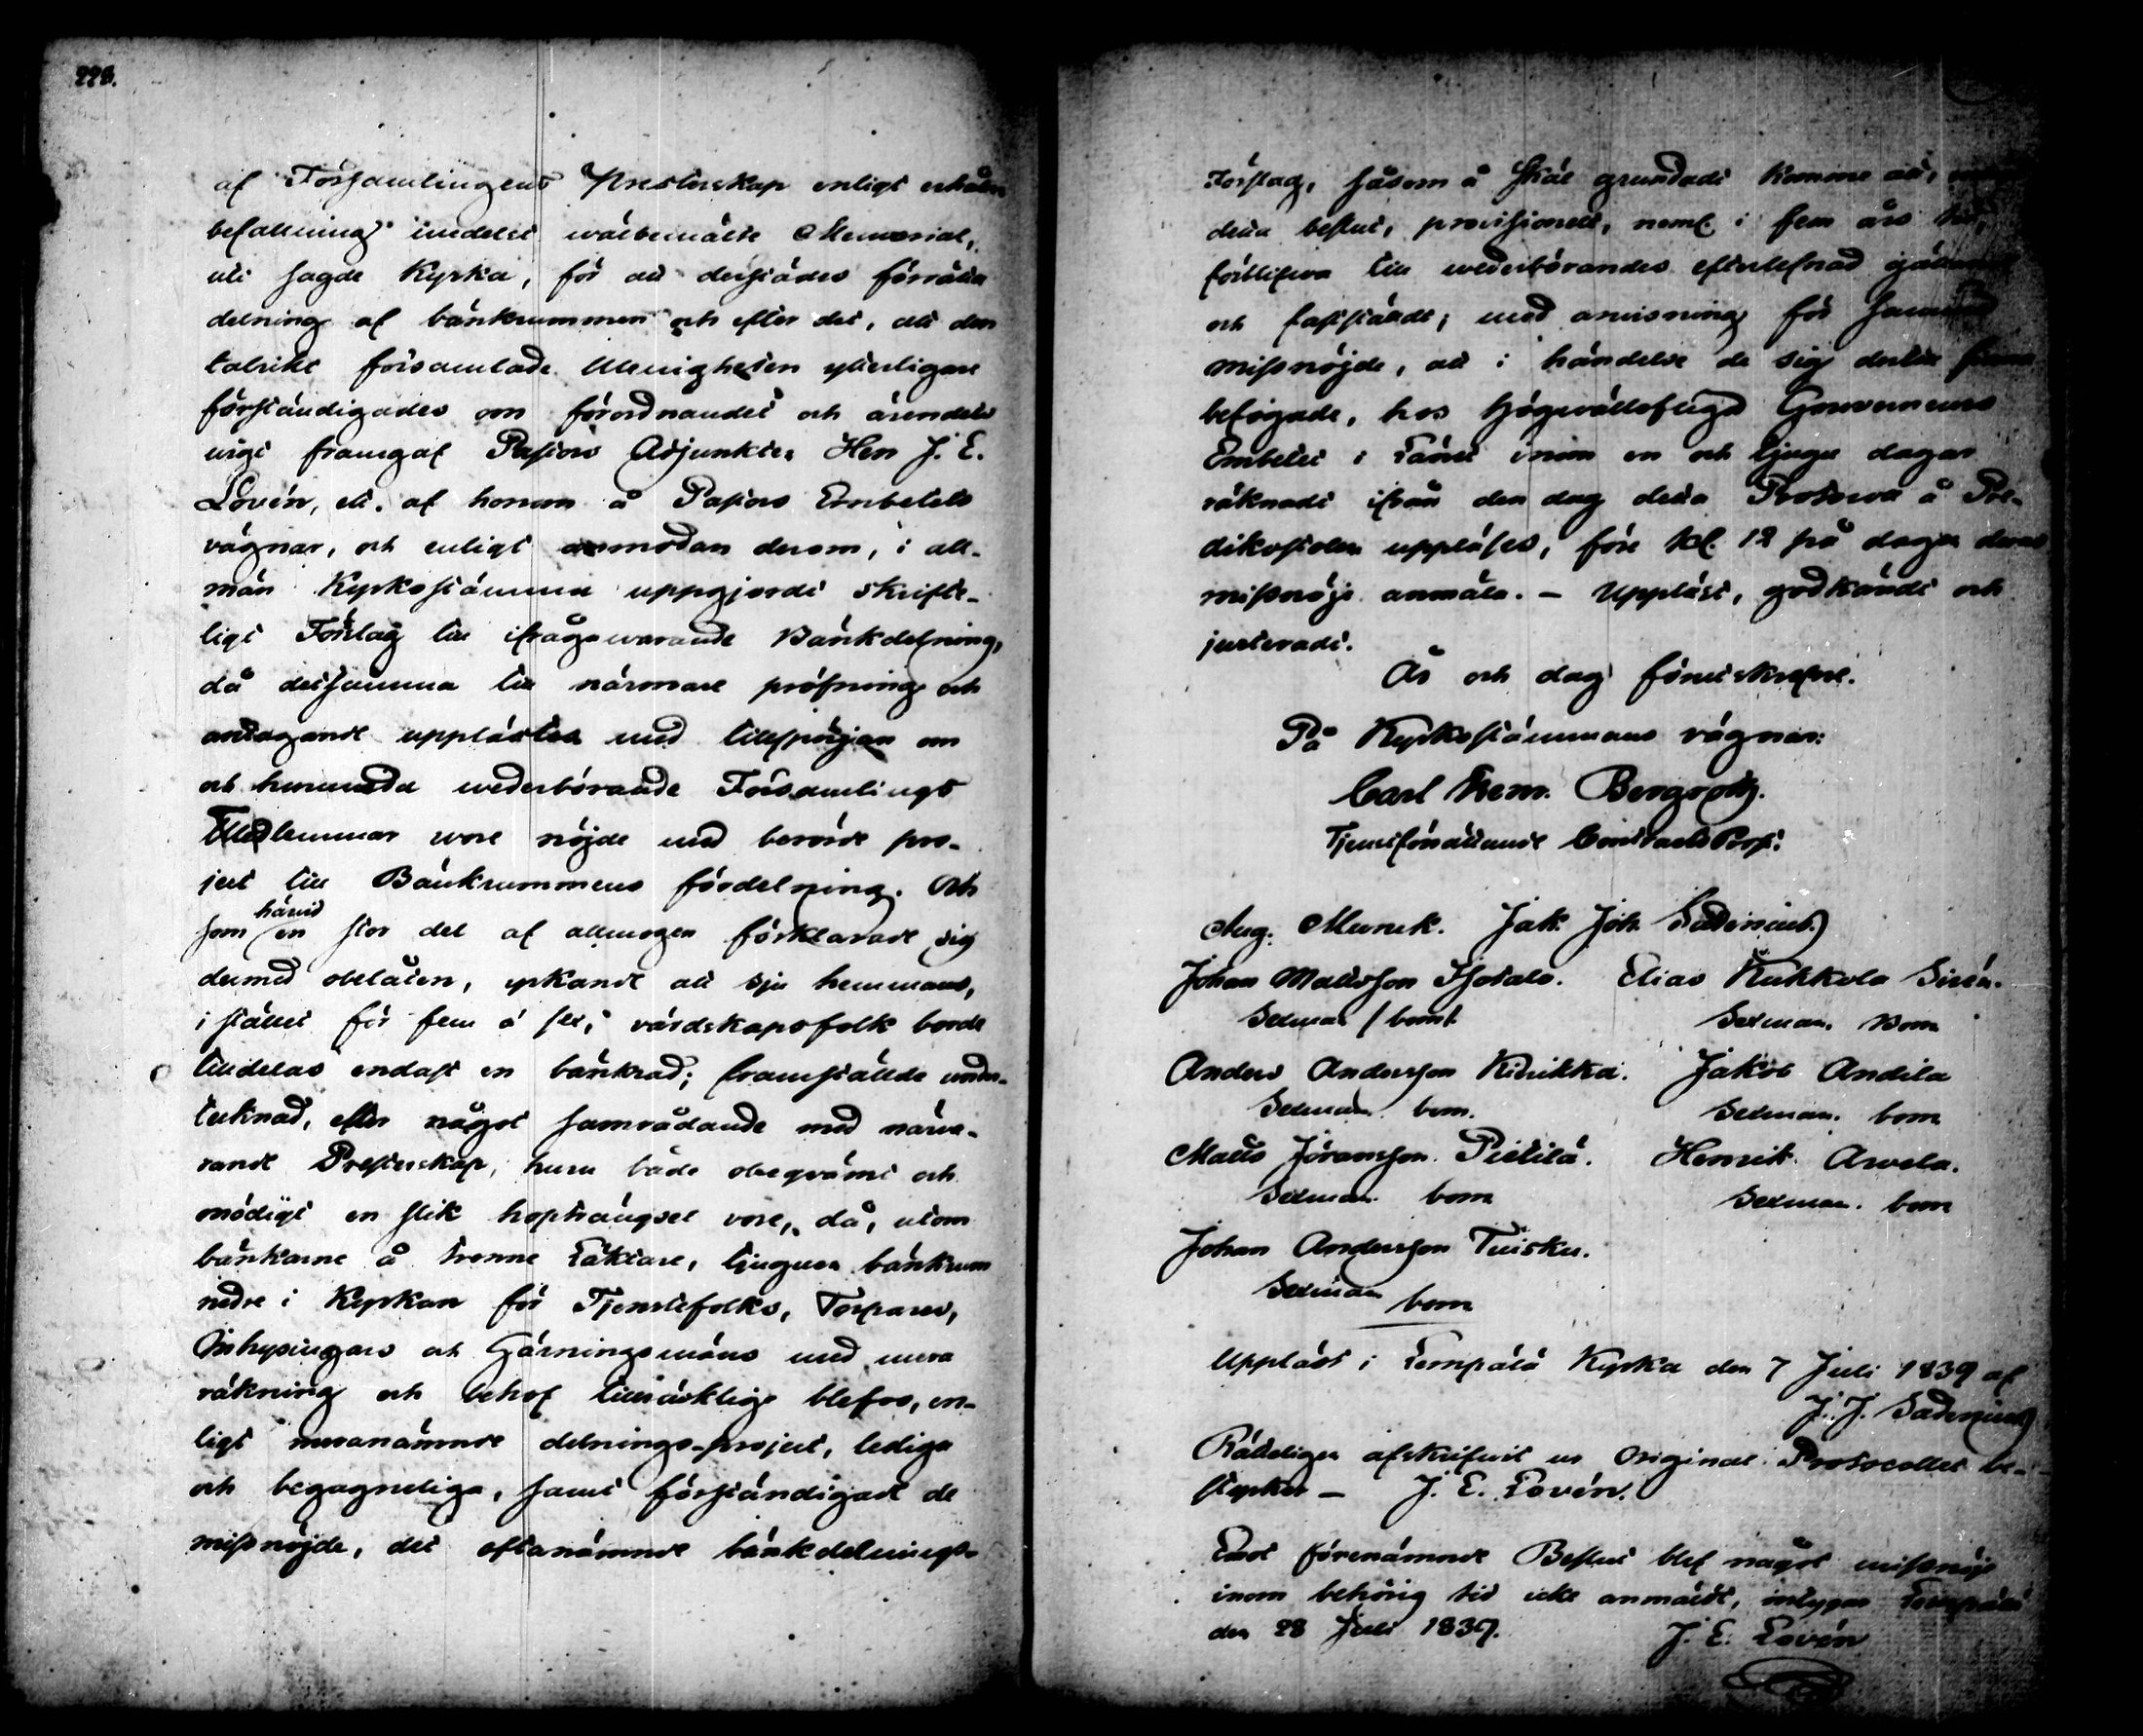 228.
af Församlingens Presterskap enligt erhållen
befallning imedelst wälbemälte Memorial,
uti sagde Kyrka, för att derstädes förrätta
delning af bänkrummen och efter det, att den
talrikt församlade Menigheten ytterligare
förständigades om förordnandet och ärendets
wigt framgaf Pastors Adjunkten Herr J. E.
Lovén, ett, af honom å Pastors Embetets
vägnar, och enligt anmodan derom, i all-
män Kyrkostämma uppgjordt skrifte-
ligt Förslag till ifrågawarande Bänkdelning,
då detsamma till närmare pröfning och
antagande upplästes med tillspörjan om
och huruwida wederbörande Församlings
Medlemmar wore nöjde med berörde pro-
ject till Bänkrummens fördelning. Och
som härwid en stor del af allmogen förklarade sig
dermed obelåten, yrkande att sju hemmans,
i stället för fem à sex, värdskapsfolk borde
tilldelas endast en bänkrad; framställde under-
tecknad, efter något samrådande med närva-
rande Presterskap, huru både obeqvämt och
onödigt en slik hopträngsel vore, då, utom
bänkarne å trenne Läktare, tjugua bänkrum
nedre i Kyrkan för Tjenstefolks, Torpares,
Inhysingars och Gärningsmäns med mera
räkning och behof tillräcklige blefvo, en-
ligt meranämnde delnings-project, lediga
och begagneliga, samt förständigade de
missnöjde, det oftanämnde bänkdelnings-
Förslag, såsom å skäl grundadt komme att,
detta beslut, provisionelt, neml. i fem års tid,
förblifwa till wederbörandes efterlefnad gällande
och fastställdt; med anvisning för
missnöjde, att i händelse de sig dertill finna
befogade, hos Högvällofliga Gouverneurs
Embetet i Länet inom en och tjugu dagar
räknadt ifrån den dag detta Protocoll å Pre-
dikostolen uppläses, före kl. 12 på dagen deras
missnöje anmäla. – Uppläst, godkändt och
justeradt.
År och dag förutskrefne.
På Kyrkostämmans vägnar:
Carl Hem. Bergroth.
Tjenstförrättande Contracts Prost.
Aug. Munck. Jak. Joh. Sadenius
Johan Mattsson Isotalo. Elias Kukkola Sirén.
Sexman / bomt. Sexman. Bom
Anders Andersson Kirikka. Jakob Andila
Sexman. bom. Sexman. bom
Matts Jöransson Pietilä. Henrik Arvela.
Sexman. bom Sexman. bom
Johan Andersson Tuisku.
Sexman bom
Uppläst i Lempälä Kyrka den 7 Juli 1839 af
J. J. Sadenius
Rätteligen afskrifvit ur Original Protocollet be-
styrker – J. E. Lovén.
Emot förenämnde Beslut blef något missnöje
inom behörig tid icke anmäldt, intygar Lempälä
den 28 Juli 1839. J. E. Lovén